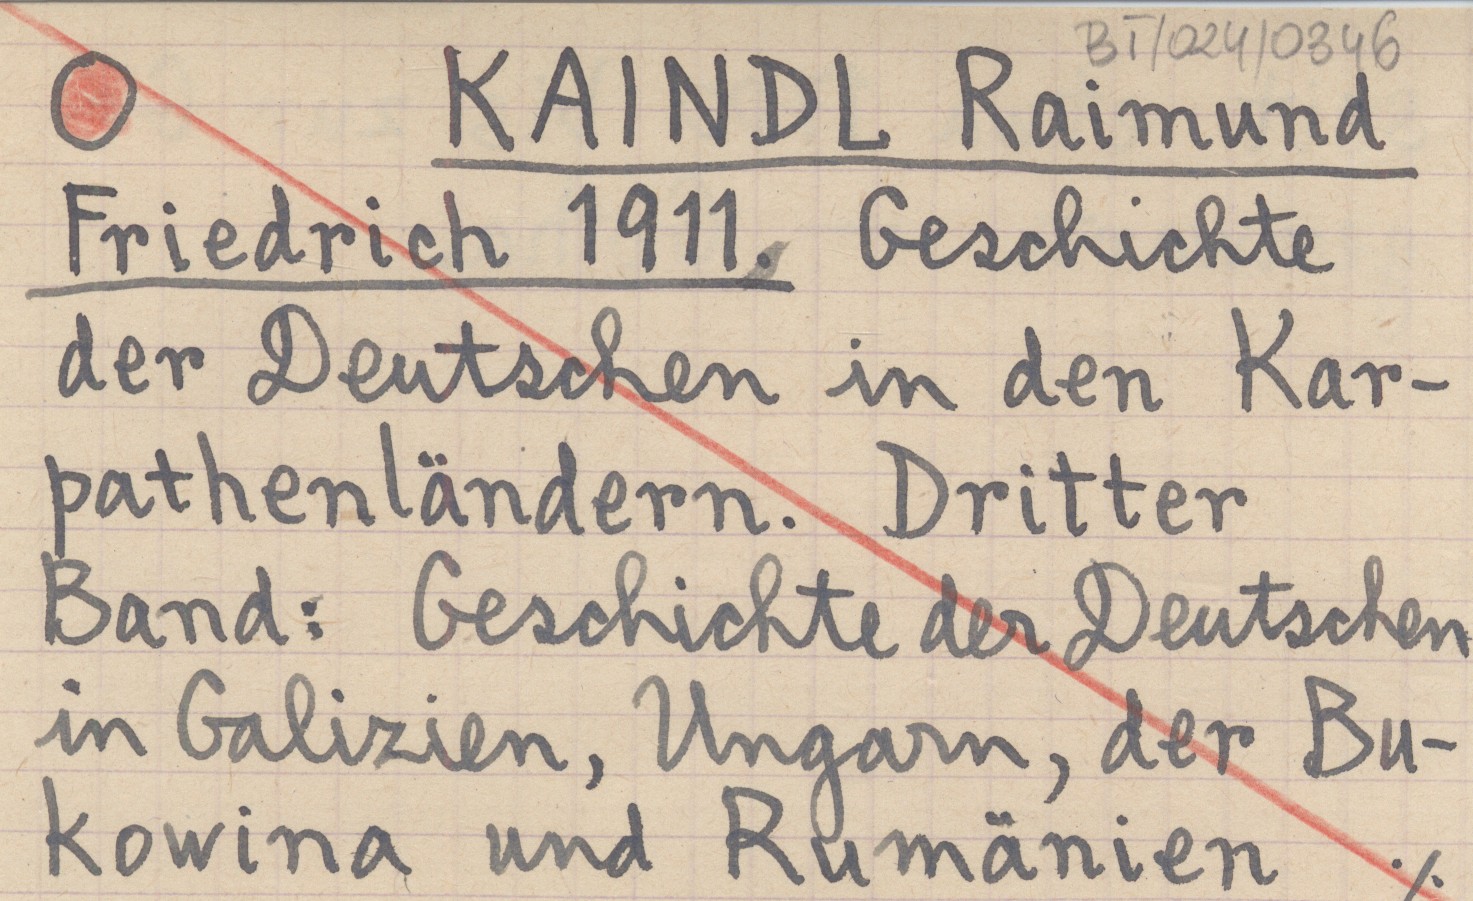 BI/024/0346
KAINDL Raimund
Friedrich 1911. Geschichte
der Deutschen in den Kar-
pathenländern. Dritter
Band: Geschichte der Deutschen
in Galizien, Ungarn, der Bu-
kowina und Rumänien ./.